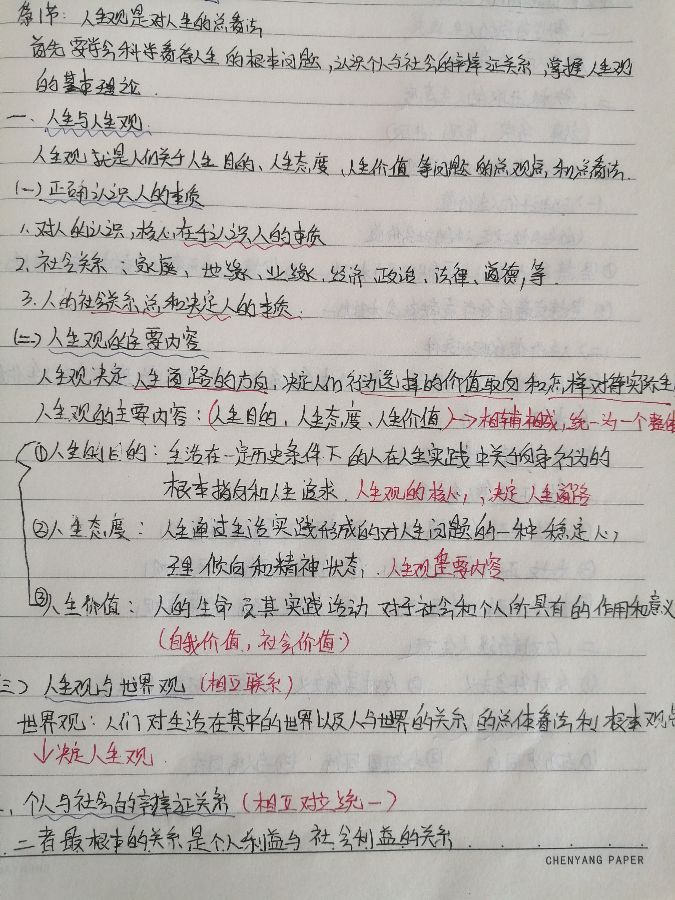 第1节：人生观是对人生的总看法
首先要学会科学看待人生的根本问题，认识个人与社会的辩证关系，掌握人生观
的基本理论.
一、人生与人生观.
人生观就是人们关于人生目的、人生态度、人生价值等问题的总观点和总看法.
(一)正确认识人的本质
1.对人的认识，核心在于认识人的本质
2.社会关系：家庭、地缘、业缘、经济、政治、法律、道德,等.
3.人的社会关系总和决定人的本质.
(二)人生观的主要内容
人生观决定人生道路的方向，决定人们行为选择的价值取向和怎样对待实际生
人生观的主要内容：(人生目的、人生态度、人生价值)→相辅相成,统一为一个整体
①人生的目的：生活在一定历史条件下的人在人生实践中关于自身行为的
根本指向和人生追求.人生观的核心,决定人生道路
②人生态度：人生通过生活实践形成的对人生问题的一种稳定心,
理倾向和精神状态.人生观重要内容
③人生价值：人的生命及其实践活动对于社会和个人所具有的作用和意义
(自我价值,社会价值)
三)人生观与世界观(相互联系)
世界观：人们对生活在其中的世界以及人与世界的关系的总体看法和根本观点
↓决定人生观.
、个人与社会的辩证关系(相互对立统一)
二者最根本的关系是个人利益与社会利益的关系
CHENYANG PAPER